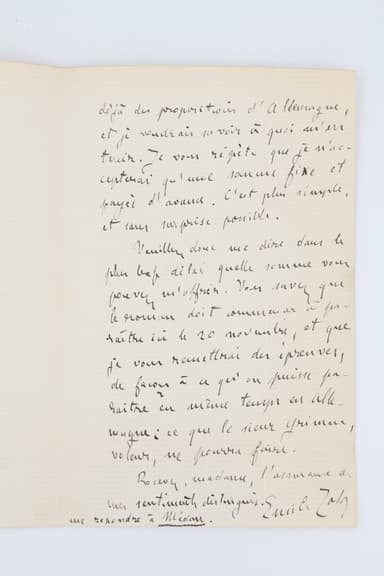 déjà des propositions d'Allemagne,
et je voudrais savoir à quoi m'en
tenir. Je vous répète que je n'ac-
cepterai qu'une somme fixe et
payée d'avance. C'est plus simple,
et sans surprise possible.
Veuillez donc me dire dans le
plus bref délai quelle somme vous
pouvez m'offrir. Vous savez que
le roman doit commencer à pa-
raître ici le 20 novembre, et que
je vous remettrai des épreuves,
de façon à ce qu'on puisse pa-
raître en même temps en Alle-
magne; ce que le sieur
voleur, ne pourra faire.
Recevez, madame, l'assurance de
mes sentiments distingués.
Emile Zola
me répondre à Médan.